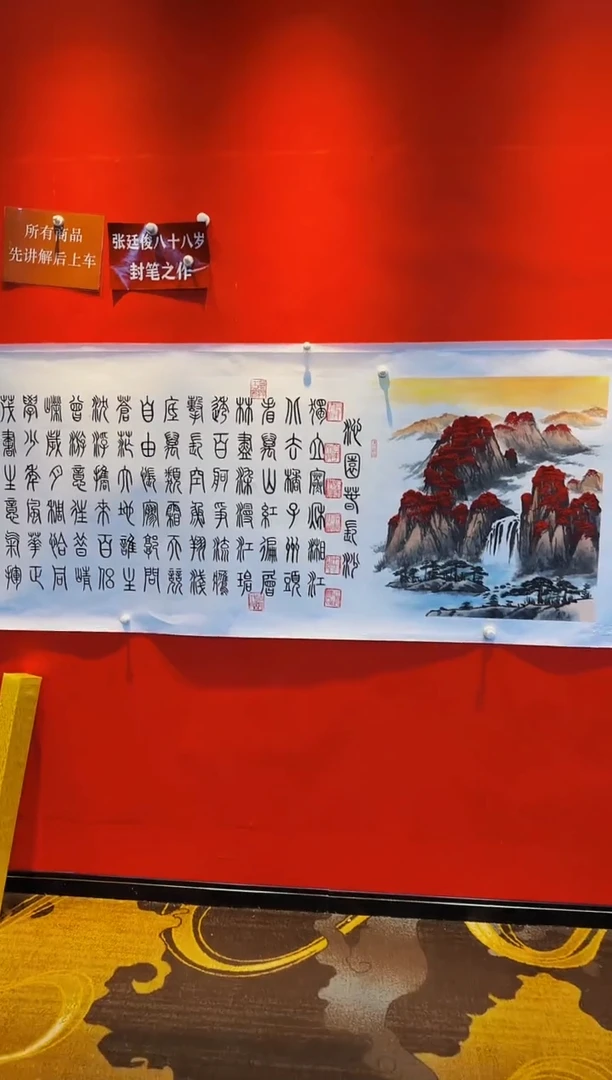 所有商品
先讲解后上车
张廷俊八十八岁
封笔之作
沁園春長沙
獨立寒秋湘江
北去橘子州頭
看萬山紅遍層
林盡染漫江碧
透百舸爭流鷹
擊長空魚翔淺
底萬類霜天競
自由悵寥廓問
蒼茫大地誰主
沈浮攜來百侶
曾游憶往昔崝
嶸歲月稠恰同
學少年風華正
茂書生意氣揮